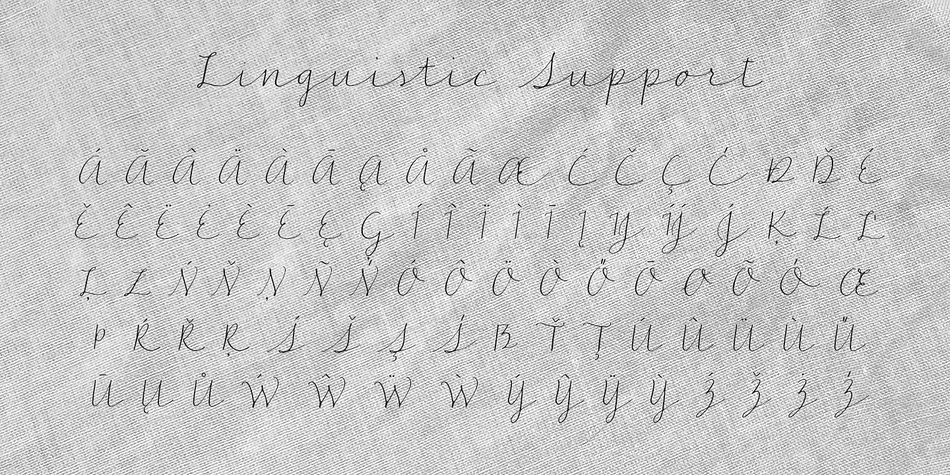 Linguistic Support
Á Ă Â Ä À Ā Ą Å Ã Æ Ć Č Ç Ċ Đ Ď É
Ě Ê Ë Ė È Ē Ę Ģ Í Î Ï Ì Ī Į Ķ Ĺ Ľ
Ļ Ł Ń Ň Ņ Ñ Ó Ô Ö Ò Ő Ō Ø Õ Œ
Þ Ŕ Ř Ŗ Ś Š Ş ẞ Ť Ţ Ú Û Ü Ù Ű
Ū Ų Ů Ẃ Ŵ Ẅ Ẁ Ý Ŷ Ÿ Ỳ Ź Ž Ż